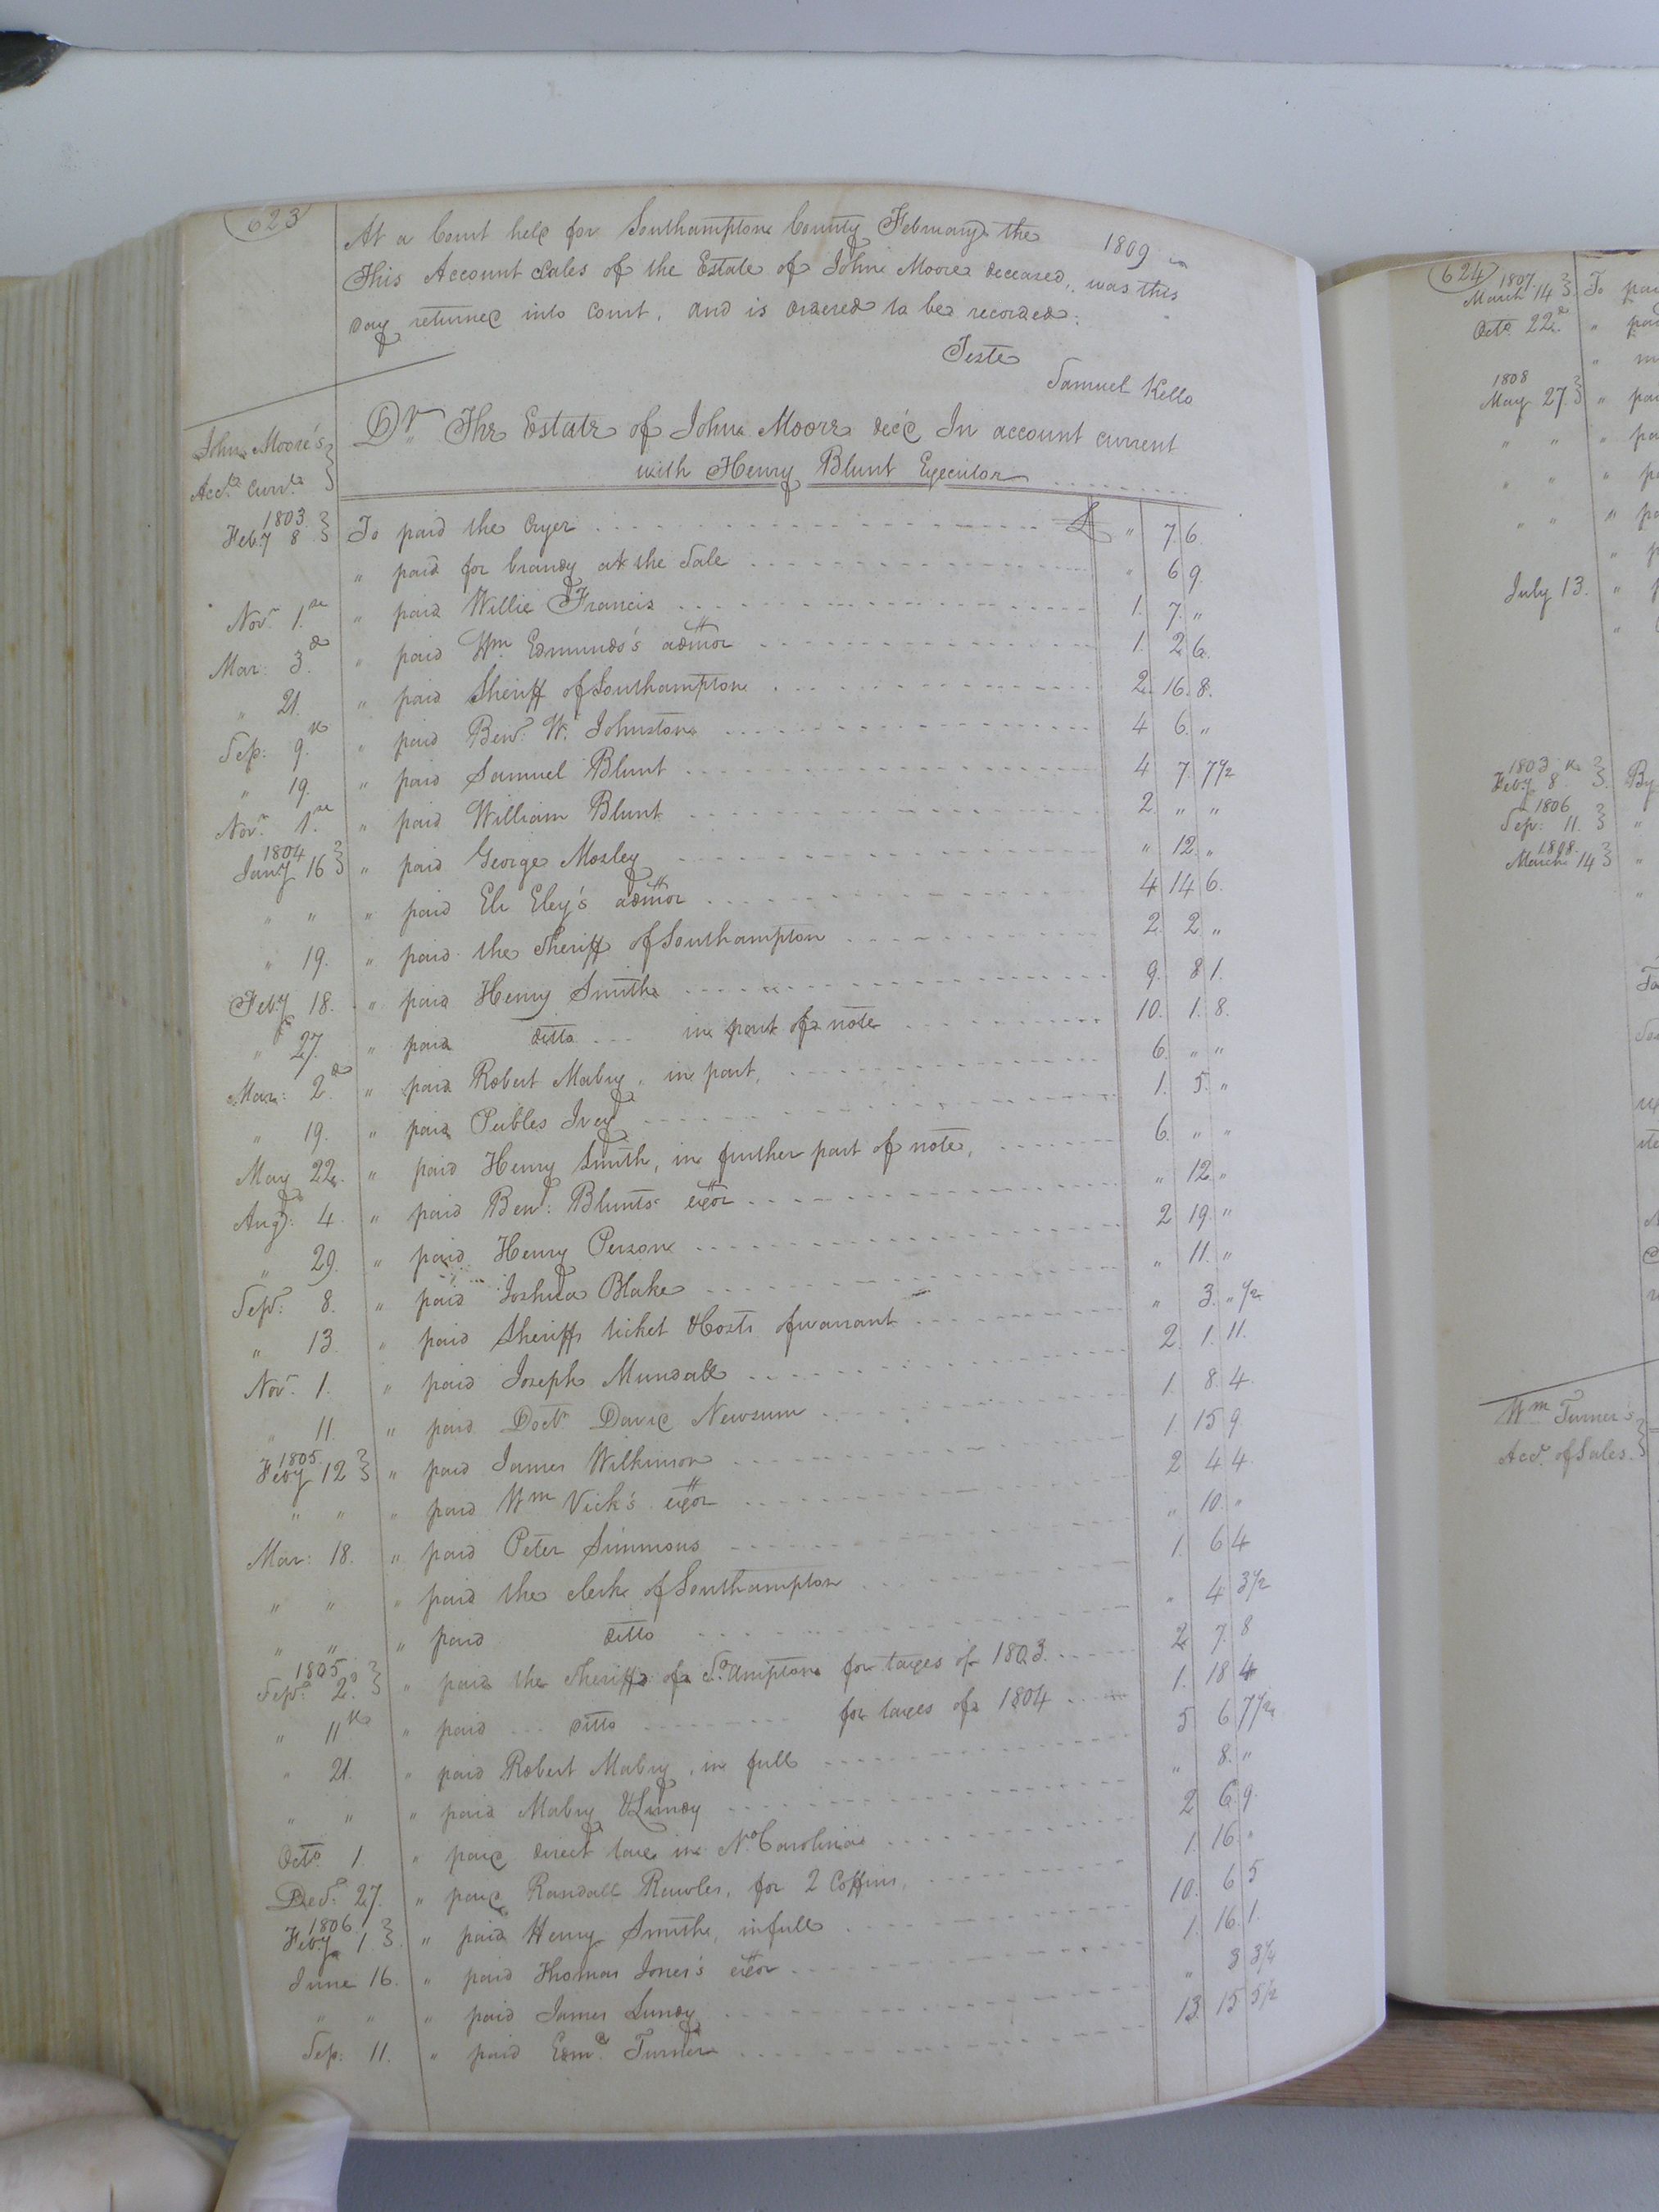 623
At a Court held for Southampton County February the 1809
This Account Sales of the Estate of John Moore deceased, was this
day returned into Court, and is ordered to be recorded.
Teste
Samuel Kello
John Moore's
Acct. Curr.
Dr The Estate of John Moore dec'd In account current
with Henry Blunt Executor
1803 Feby 8 To paid the Cryer £ " 7. 6.
" paid for brandy at the Sale " 6 9
Novr. 1.st " paid Willie Francis 1. 7. "
Mar: 3.d " paid Wm. Edmunds's admor 1. 2 6.
" 21. " paid Sheriff of Southampton 2. 16. 8.
Sep: 9.th " paid Benj. W. Johnston 4 6. "
" 19. " paid Samuel Blunt 4 7. 7 1/2
Novr. 1.st " paid William Blunt 2. " "
1804 Jany 16 " paid George Mosley " 12. "
" " " paid Eli Eley's admor 4 14 6.
" 19. " paid the Sheriff of Southampton 2. 2. "
Feby 18. " paid Henry Smith 9. 8 1.
" 27. " paid ditto in part of note 10. 1. 8.
Mar: 2.d " paid Robert Mabry, in part, 6. " "
" 19. " paid Peebles Ivey 1. 5. "
May 22. " paid Henry Smith, in further part of note, 6. " "
Aug: 4. " paid Benj. Blunts exor " 12. "
" 29. " paid Henry Person 2 19. "
Sepr: 8. " paid Joshua Blake " 11. "
" 13. " paid Sheriffs ticket & Costs of warrant " 3. " 1/2
Novr. 1. " paid Joseph Mundall 2. 1. 11.
" 11. " paid Doctr David Newsum 1. 8. 4.
1805 Feby 12 " paid James Wilkinson 1 15 9.
" " " paid Wm Vick's exor 2 4 4.
Mar: 18. " paid Peter Simmons " 10. "
" " " paid the clerk of Southampton 1. 6 4
" " " paid ditto " 4 3 1/2
1805 Sepr. 2.d " paid the Sheriff of So.ampton for taxes of 1803 2 7. 8
" 11th " paid ditto for taxes of 1804 1. 18 4
" 21. " paid Robert Mabry, in full 5 6 7 1/2
" " " paid Mabry & Lundy " 8. "
Octo. 1. " paid direct tax in No Carolina 2 6. 9.
Decr. 27. " paid Randall Rawles, for 2 Coffins, 1. 16 "
1806 Feby 1. " paid Henry Smith, in full 10. 6 5
June 16. " paid Thomas Jones's exor 1. 16. 1.
" " " paid James Lundy " 3 3 3/4
Sep: 11. " paid Edmd. Turner 13. 15 5 1/2
624
1807. March 14 To
Octo. 22d "
"
1808 May 27. "
" " "
" " "
" " "
"
July 13. "
"
1803 Feby 8th By
1806 Sep: 11. "
1808. March 14 "
"
Wm Turner's
Acct. of Sales.